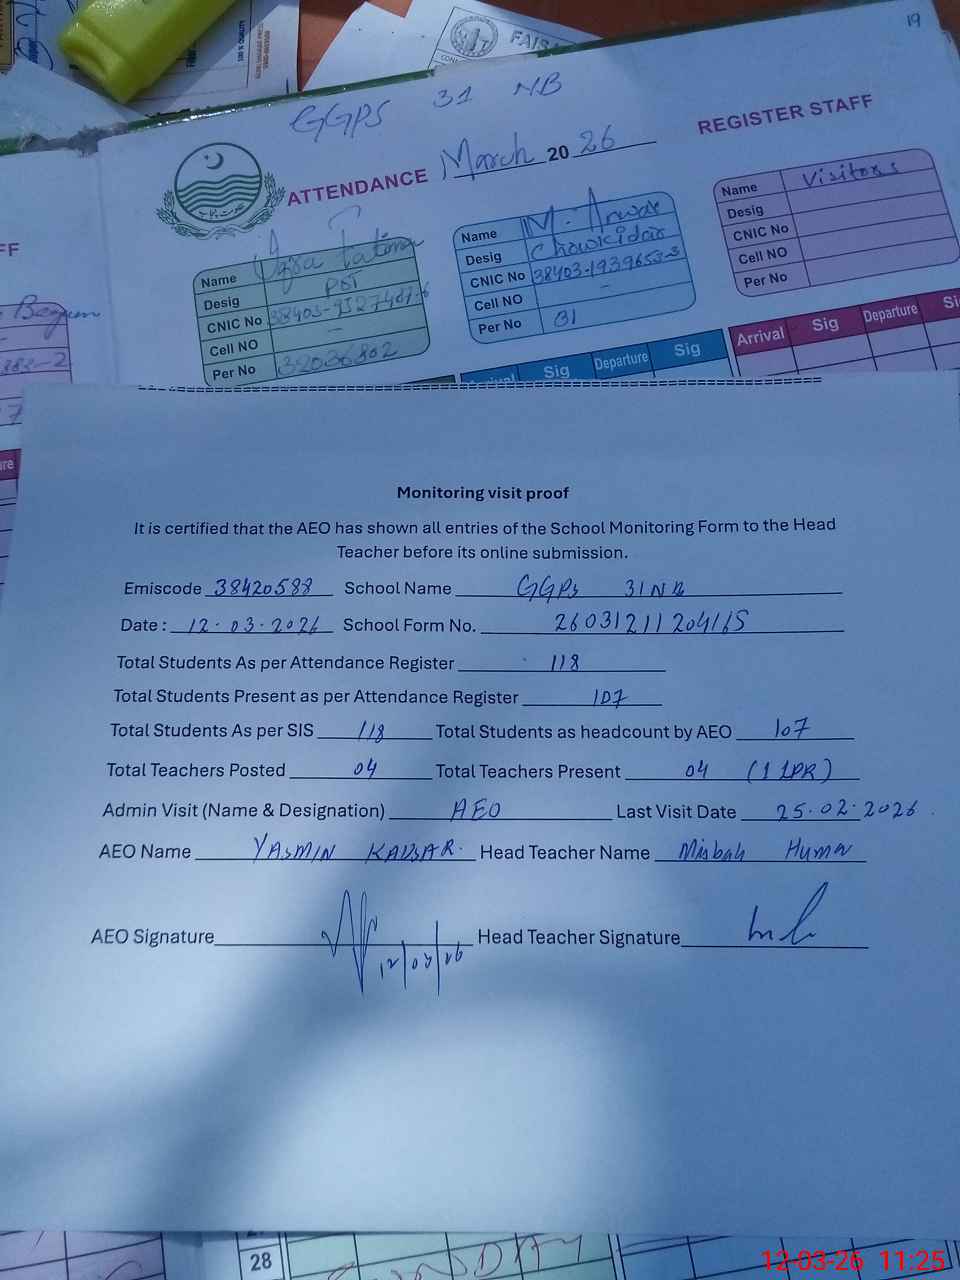 19
FAIS
GGPS 31 NB
ATTENDANCE March 20 26 REGISTER STAFF
Name Azra Fatima
Desig PST
CNIC No
Cell NO -
Per No 32036802
Name M. Anwar
Desig Chowkidar
CNIC No 38403-1939653-3
Cell NO -
Per No 31
Name Visitors
Desig
CNIC No
Cell NO
Per No
FF
Begum
Sig Departure Sig
Arrival Sig Departure
Monitoring visit proof
It is certified that the AEO has shown all entries of the School Monitoring Form to the Head
Teacher before its online submission.
Emiscode 38420588 School Name GGPS 31 NB
Date : 12.03.2026 School Form No. 26031211204165
Total Students As per Attendance Register 118
Total Students Present as per Attendance Register 107
Total Students As per SIS 118 Total Students as headcount by AEO 107
Total Teachers Posted 04 Total Teachers Present 04 (1 LPR)
Admin Visit (Name & Designation) AEO Last Visit Date 25.02.2026.
AEO Name YASMIN KAUSAR. Head Teacher Name Misbah Huma
AEO Signature 12/03/26 Head Teacher Signature
28
12-03-26 11:25